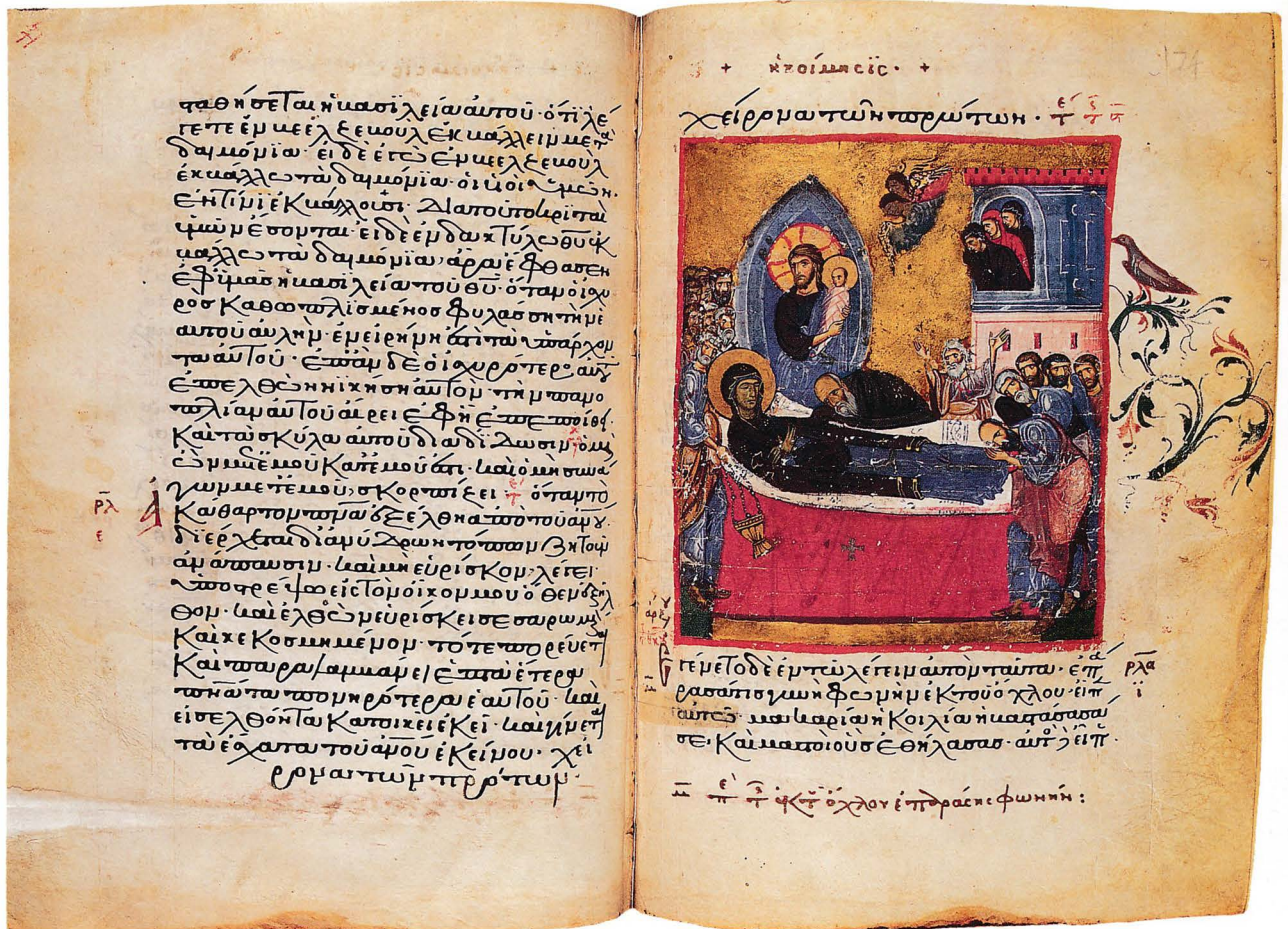 ταθήσεται ἡ βασιλεία αὐτοῦ· ὅτι λέ
γετε ἐν βεελζεβοὺλ ἐκβάλλειν με τὰ
δαιμόνια· εἰ δὲ ἐγὼ ἐν βεελζεβοὺλ
ἐκβάλλω τὰ δαιμόνια· οἱ υἱοὶ ὑμῶν·
ἐν τίνι ἐκβάλλουσι· Διατοῦτο κριταὶ
ὑμῶν ἔσονται· εἰ δὲ ἐν δακτύλω θ̅υ̅ ἐκ
βάλλω τὰ δαιμόνια· ἄρα ἔφθασεν
ἐφ ὑμᾶς ἡ βασιλεία τοῦ θ̅υ̅· ὅταν ὁ ἰσχυ
ρὸς καθωπλισμένος φυλάσση τὴν ἑ
αυτοῦ αὐλήν· ἐν εἰρήνη ἐστὶ τὰ ὑπάρχον
τα αὐτοῦ· ἐπὰν δὲ ὁ ἰσχυρότερος αὐτοῦ
ἐπελθὼν νικήση αὐτόν· τὴν πανο
πλίαν αὐτοῦ αἴρει ἐφ ἧ ἐπεποίθει·
καὶ τὰ σκῦλα αὐτοῦ διαδίδωσιν· ὁ μὴ
ὢν μετ ἐμοῦ κατ ἐμοῦ ἐστι· καὶ ὁ μὴ συνά
γων μετ ἐμοῦ σκορπίζει· ὅταν τὸ
ρλ
ε
ἀκάθαρτον π̅ν̅α̅ ἐξέλθη ἀπὸ τοῦ α̅ν̅ο̅υ̅
διέρχεται δι ἀνύδρων τόπων ζητοῦν
ἀνάπαυσιν· καὶ μὴ εὑρίσκον· λέγει
ὑποστρέψω εἰς τὸν οἶκον μου ὅθεν ἐξῆλ
θον· καὶ ἐλθὸν εὑρίσκει σεσαρωμένον
καὶ κεκοσμημένον· τότε πορεύεται
καὶ παραλαμβάνει ἑπτὰ ἕτερα
π̅ν̅α̅τα πονηρότερα ἑαυτοῦ· καὶ
εἰσελθόντα κατοικεῖ ἐκεῖ· καὶ γίνεται
τὰ ἔσχατα τοῦ α̅ν̅ο̅υ̅ ἐκείνου· χεί
ρονα τῶν πρώτων·
+ ἡ κοίμησις· +
174
χείρονα τῶν πρώτων·
ἐγένετο δὲ ἐν τῶ λέγειν αὐτὸν ταῦτα· ἐπά
ρλα
ι
ρασά τις γυνὴ φωνὴν ἐκ τοῦ ὄχλου· εἶπεν
αὐτῶ· μακαρία ἡ κοιλία ἡ βαστάσασά
σε· καὶ μαστοὶ οὓς ἐθήλασας· αὐτὸς δὲ εἶπεν
ἐκ τοῦ ὄχλου ἐπάρασης φωνὴν: